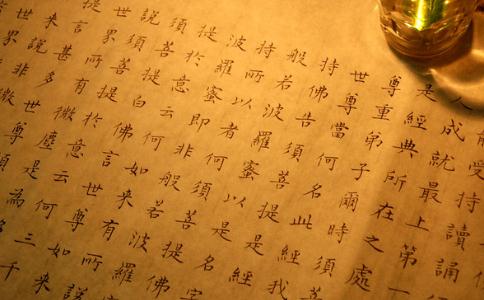 能受持讀誦
人成就最上第一
是經典所在之處
尊重弟子爾時須菩
世尊當何名此經我
持佛告須菩提是經
般若波羅蜜以是名字
持所以者何須菩提佛
波羅蜜即非般若波羅
提於意云何如來有所說
須菩提白佛言世尊如來
說須菩提於意云何三千
世界所有微塵是為
提言甚多世尊須
來說
世界非微